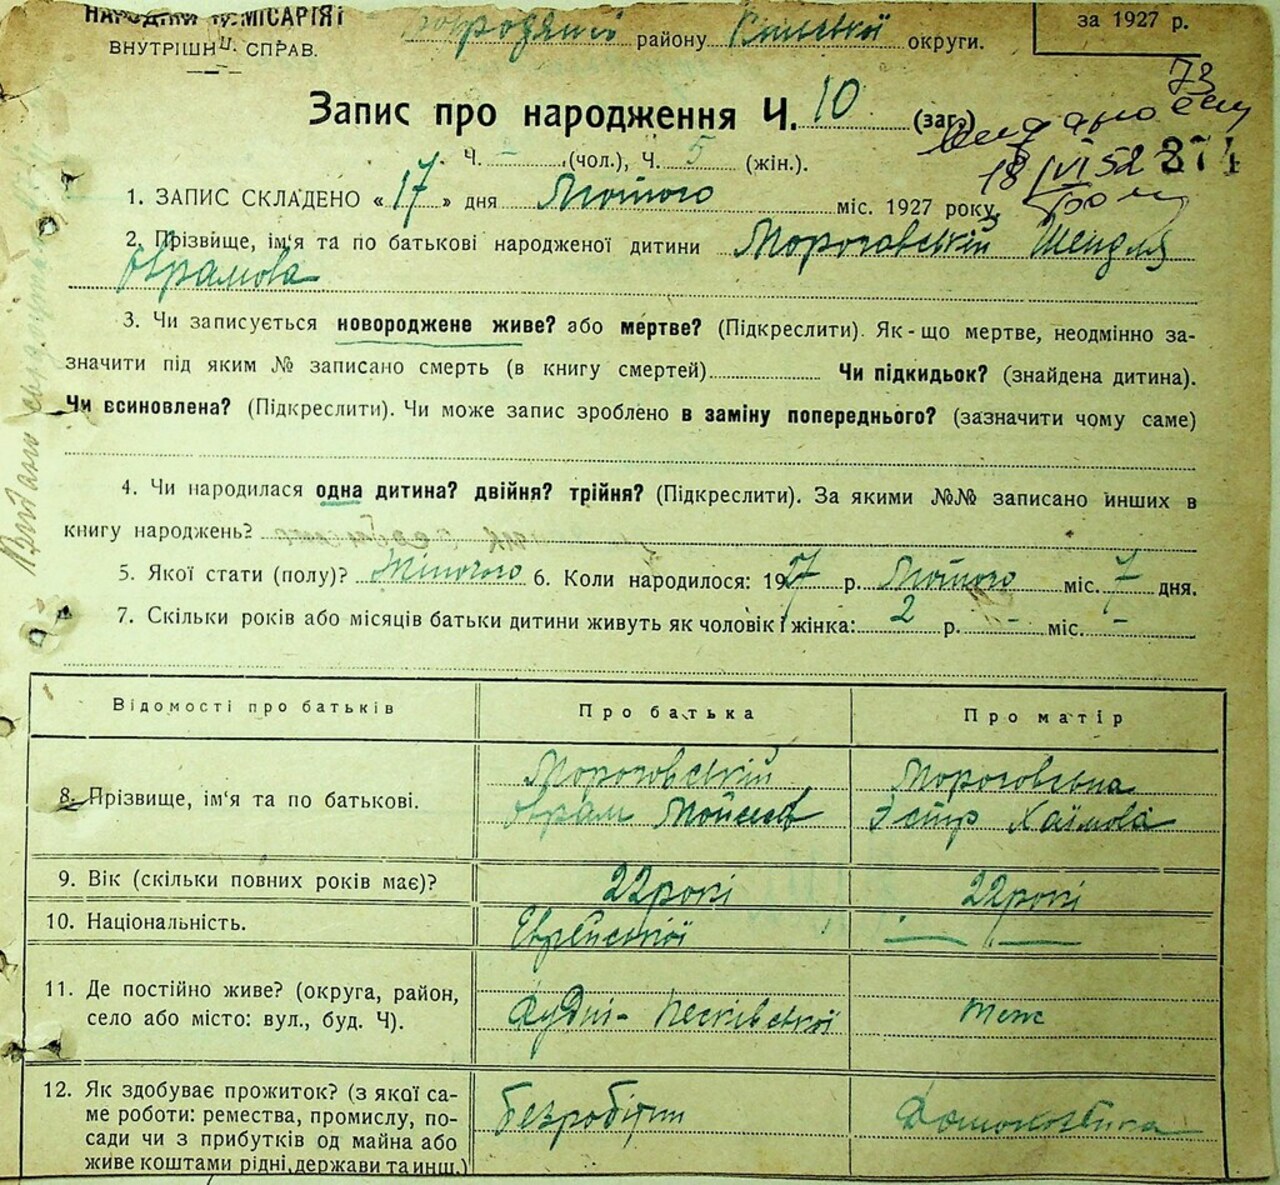 НАРОДНИЙ КОМІСАРІЯТ
за 1927 р.
району Київської округи.
ВНУТРІШНІХ СПРАВ.
73
Запис про народження Ч. 10 (заг.)
Ч. - (чол.), Ч. 5 (жін.).
18/VI 52 374
1. ЗАПИС СКЛАДЕНО « 17 » дня Лютого міс. 1927 року.
2. Прізвище, ім'я та по батькові народженої дитини Морогавській Шендля
Аврамова
3. Чи записується новороджене живе? або мертве? (Підкреслити). Як-що мертве, неодмінно за-
значити під яким № записано смерть (в книгу смертей) Чи підкидьок? (знайдена дитина).
Чи всиновлена? (Підкреслити). Чи може запис зроблено в заміну попереднього? (зазначити чому саме)
4. Чи народилася одна дитина? двійня? трійня? (Підкреслити). За якими №№ записано инших в
книгу народжень?
5. Якої стати (полу)? Жіночого 6. Коли народилося: 1927 р. Лютого міс. 7 дня.
7. Скільки років або місяців батьки дитини живуть як чоловік і жінка: 2 р. - міс. -
Відомості про батьків Про батька Про матір
8. Прізвище, ім'я та по батькові. Мороговській Мороговська
Аврам Мойсеєв Эстир Хаїмова
9. Вік (скільки повних років має)? 22 рокі 22 рокі
10. Національність. Еврейської
11. Де постійно живе? (округа, район,
село або місто: вул., буд. Ч). Будні-Пєсківської теж
12. Як здобуває прожиток? (з якої са-
ме роботи: ремества, промислу, по- безробітни Домохозяйка
сади чи з прибутків од майна або
живе коштами рідні, держави та инш.)